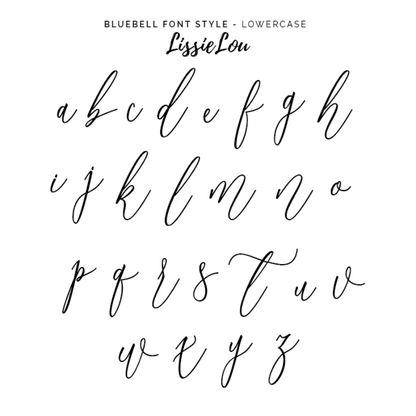 BLUEBELL FONT STYLE - LOWERCASE
LissieLou
a b c d e f g h
i j k l m n o
p q r s t u v
w x y z